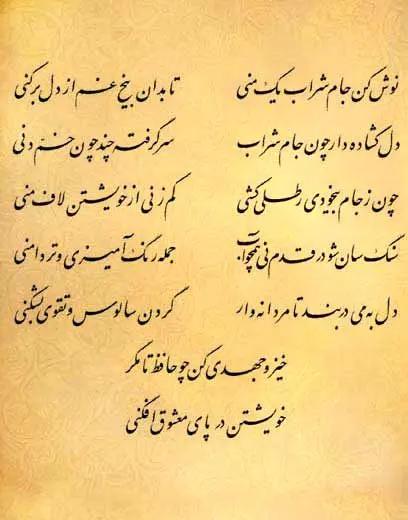 نوش کن جام شراب یک منی تا بدان بیخ غم از دل برکنی
دل گشاده دار چون جام شراب سر گرفته چند چون خمّ دنی
چون ز جام بیخودی رطلی کشی کم زنی از خویشتن لاف منی
سنگ سان شو در قدم نی همچو آب جمله رنگ آمیزی و تردامنی
دل به می دربند تا مردانه وار گردن سالوس و تقوی بشکنی
خیز و جهدی کن چو حافظ تا مگر
خویشتن در پای معشوق افکنی